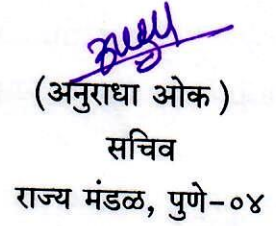 (अनुराधा ओक )
सचिव
राज्य मंडळ, पुणे-०४